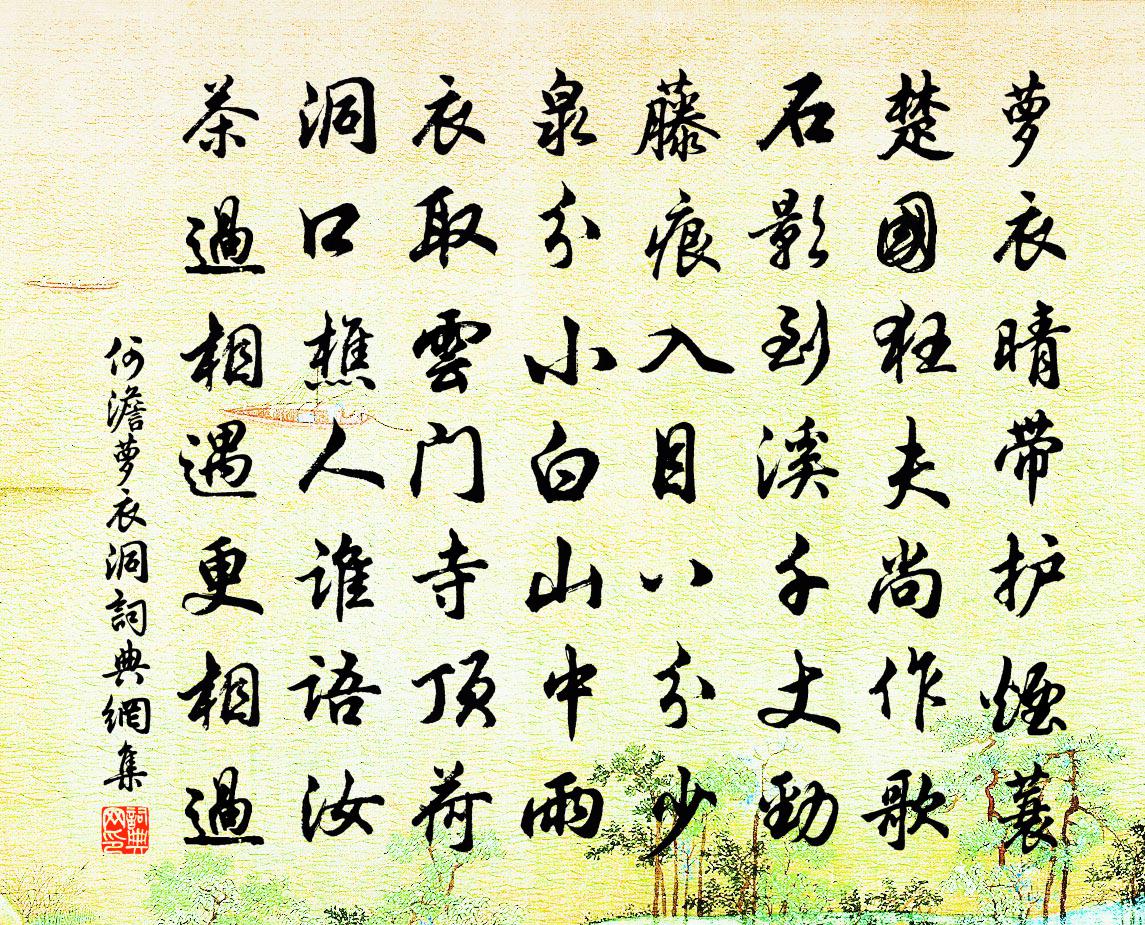 萝衣晴带护煙蓑
楚國狂夫尚作歌
石影到溪千丈勁
藤痕入目八分少
泉分小白山中雨
衣取雲门寺顶荷
洞口樵人谁語汝
茶過相遇更相過
何澹萝衣洞詞典網集
詞典网印